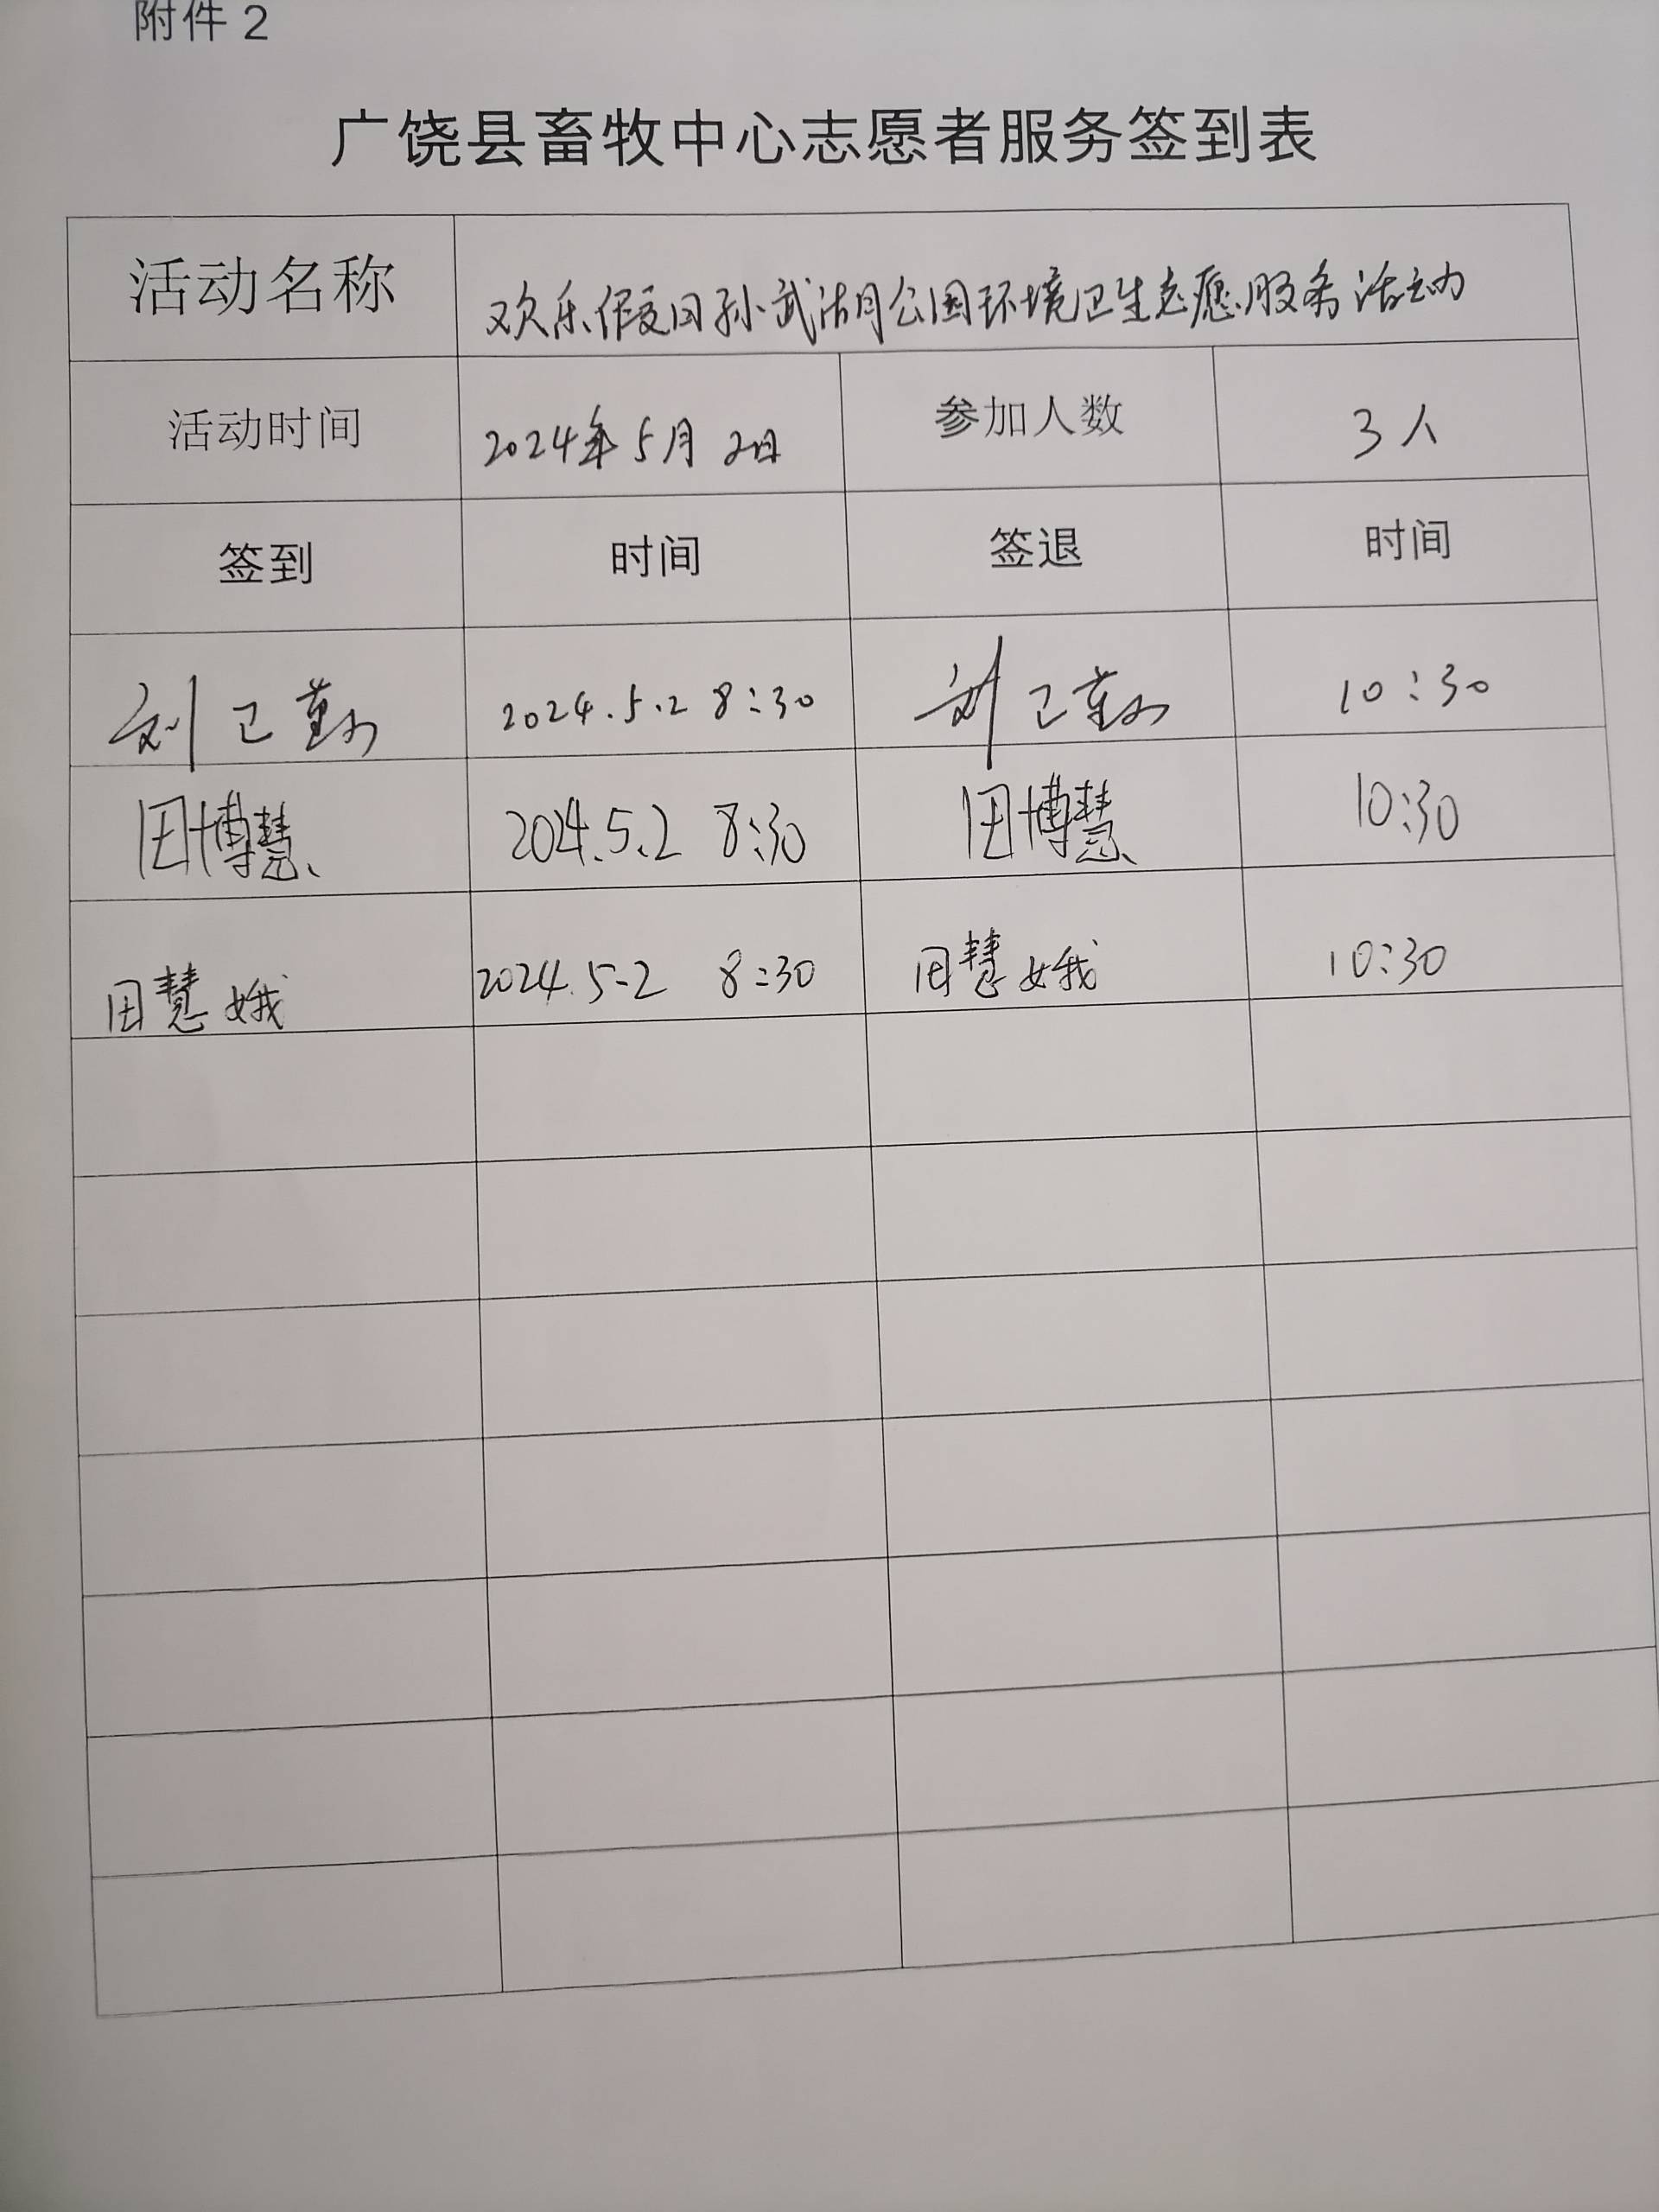 附件2
广饶县畜牧中心志愿者服务签到表
活动名称 欢乐假日孙武湖公园环境卫生志愿服务活动
活动时间 2024年5月2日 参加人数 3人
签到 时间 签退 时间
刘卫勤 2024.5.2 8:30 刘卫勤 10:30
田博慧 2024.5.2 8:30 田博慧 10:30
田慧娥 2024.5-2 8:30 田慧娥 10:30